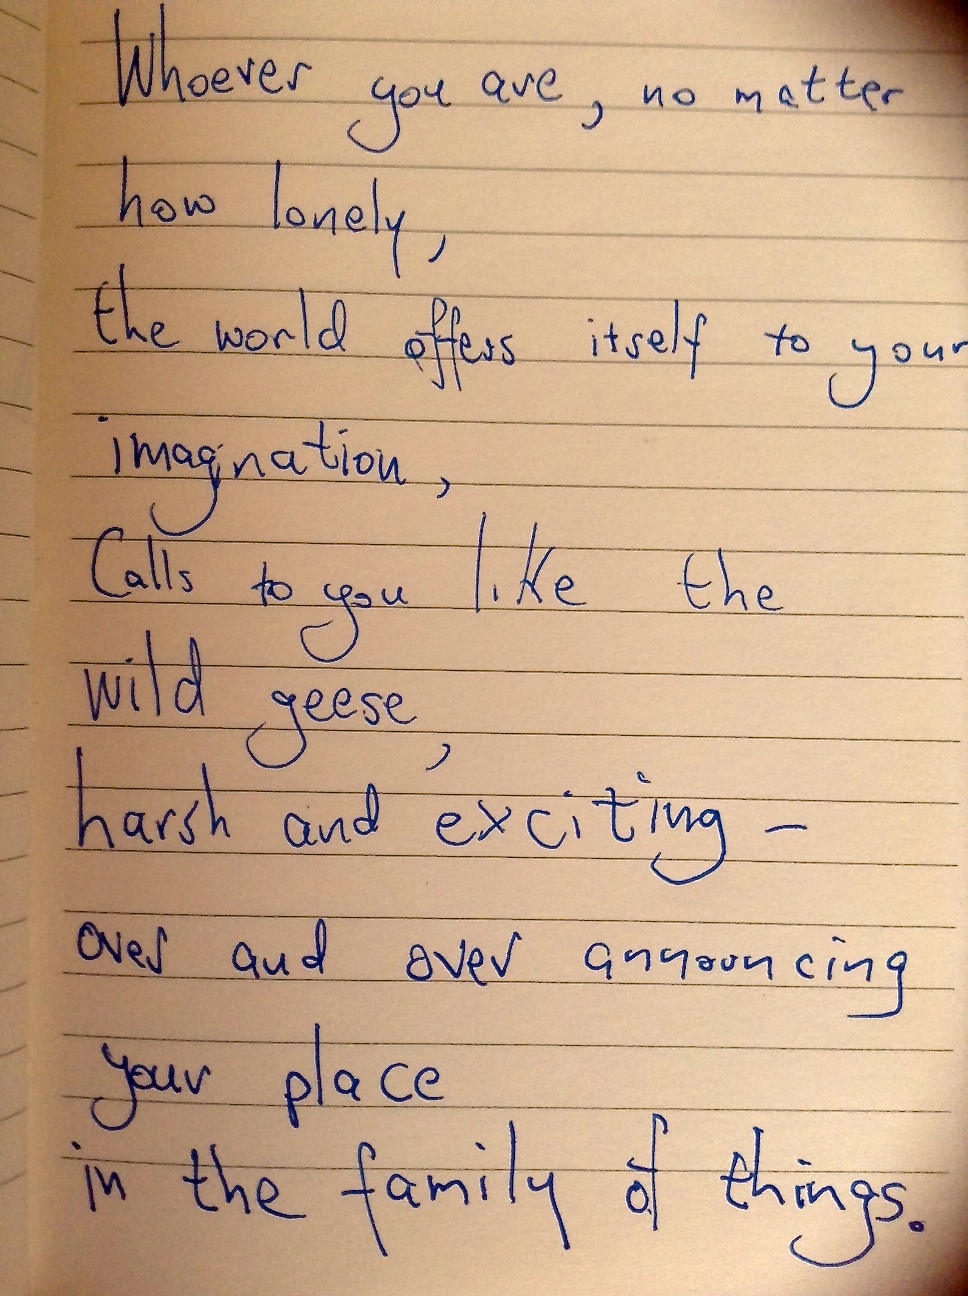 Whoever you are, no matter
how lonely,
the world offers itself to your
imagination,
Calls to you like the
wild geese,
harsh and exciting –
over and over announcing
your place
in the family of things.